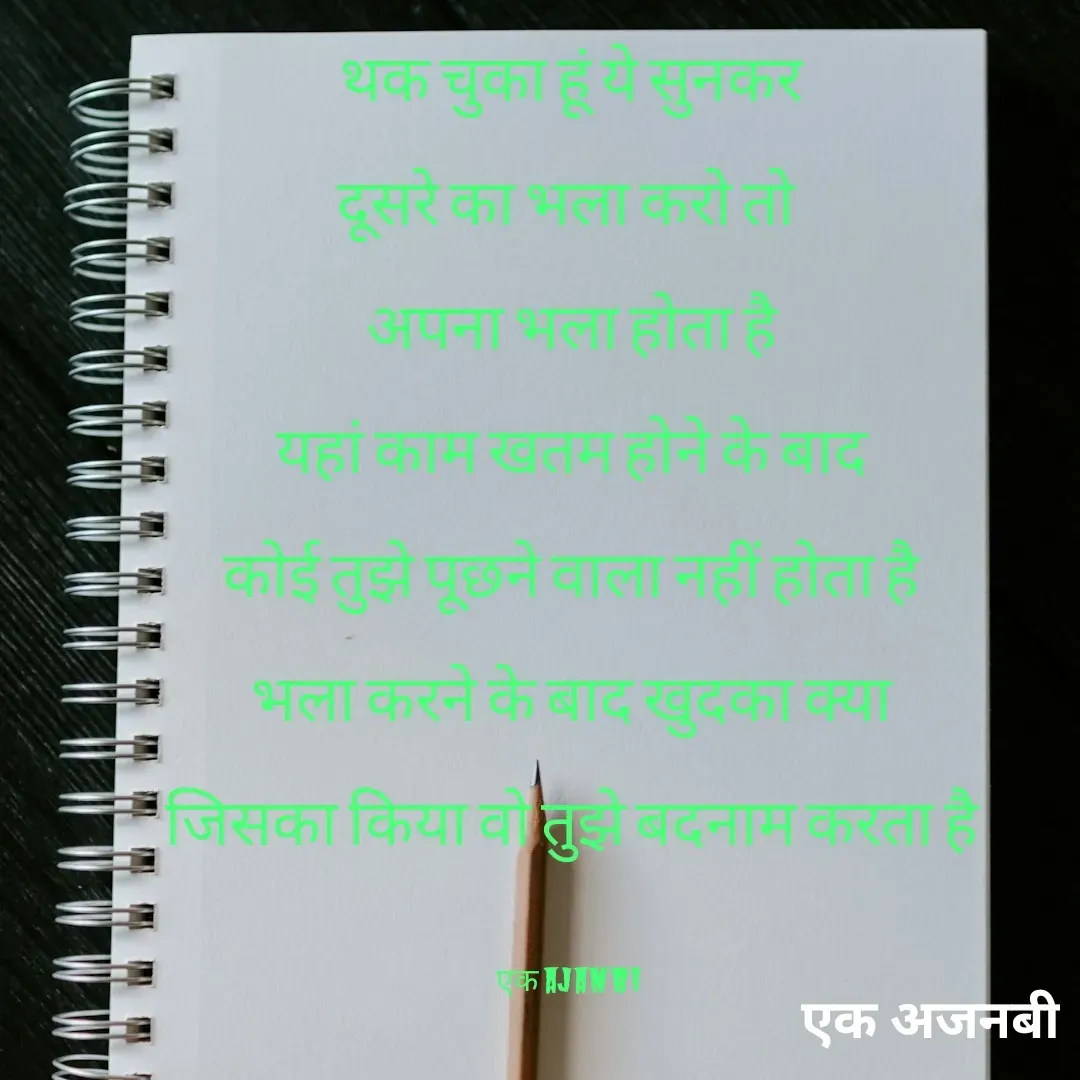 थक चुका हूं ये सुनकर
दूसरे का भला करो तो
अपना भला होता है
यहां काम खतम होने के बाद
कोई तुझे पूछने वाला नहीं होता है
भला करने के बाद खुदका क्या
जिसका किया वो तुझे बदनाम करता है
एक AJANNBI
एक अजनबी